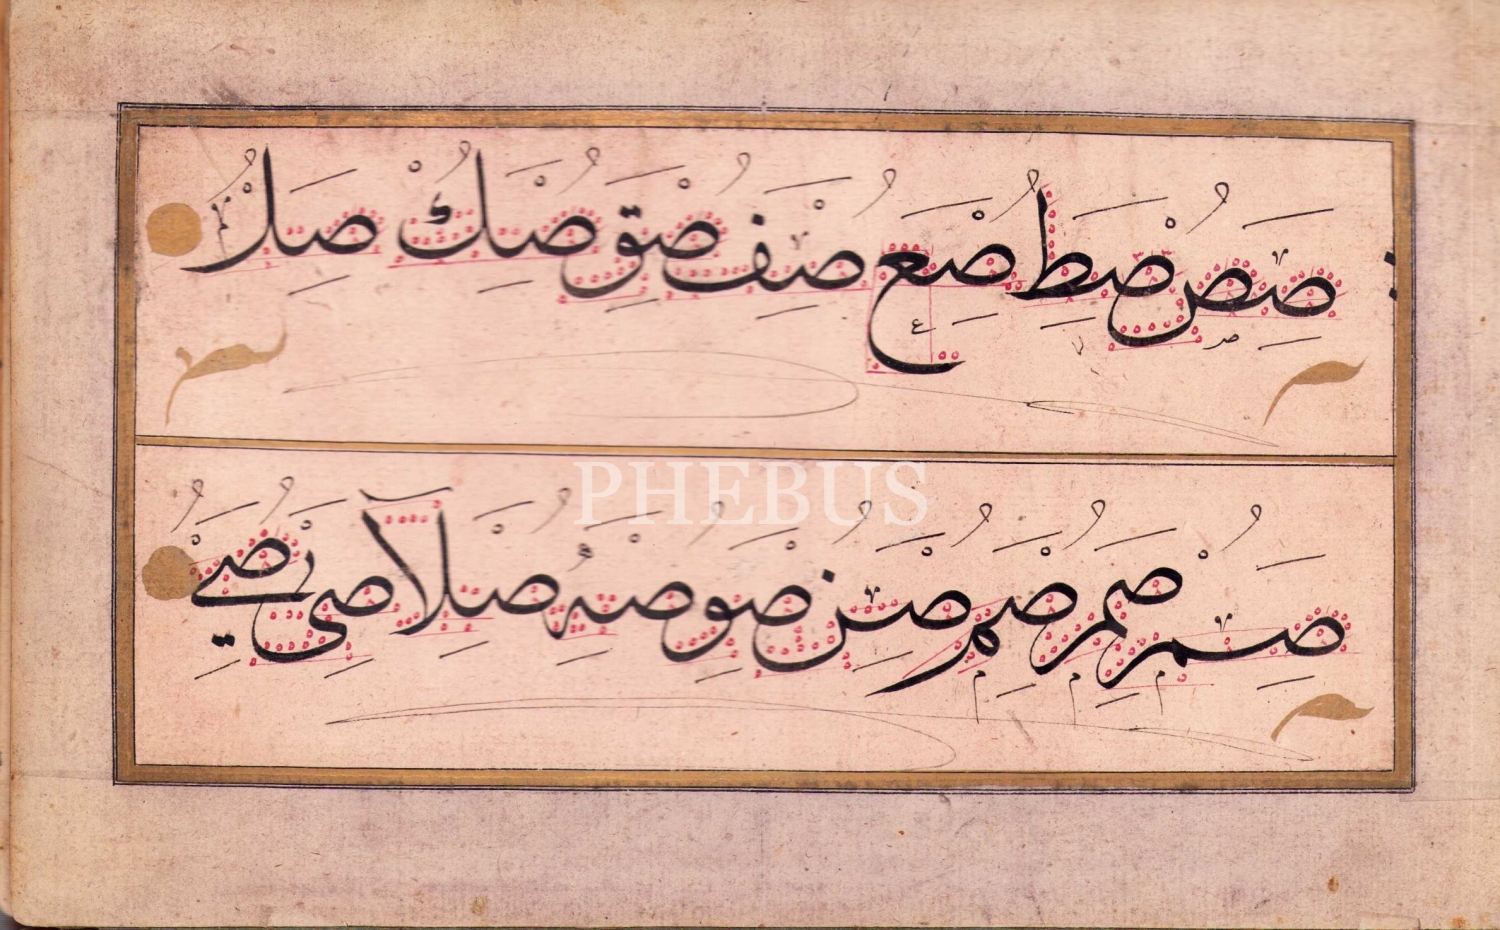 صص صط صع صف صق صك صل
PHEBUS
صم صم صم صن صو صه صلا صى صے